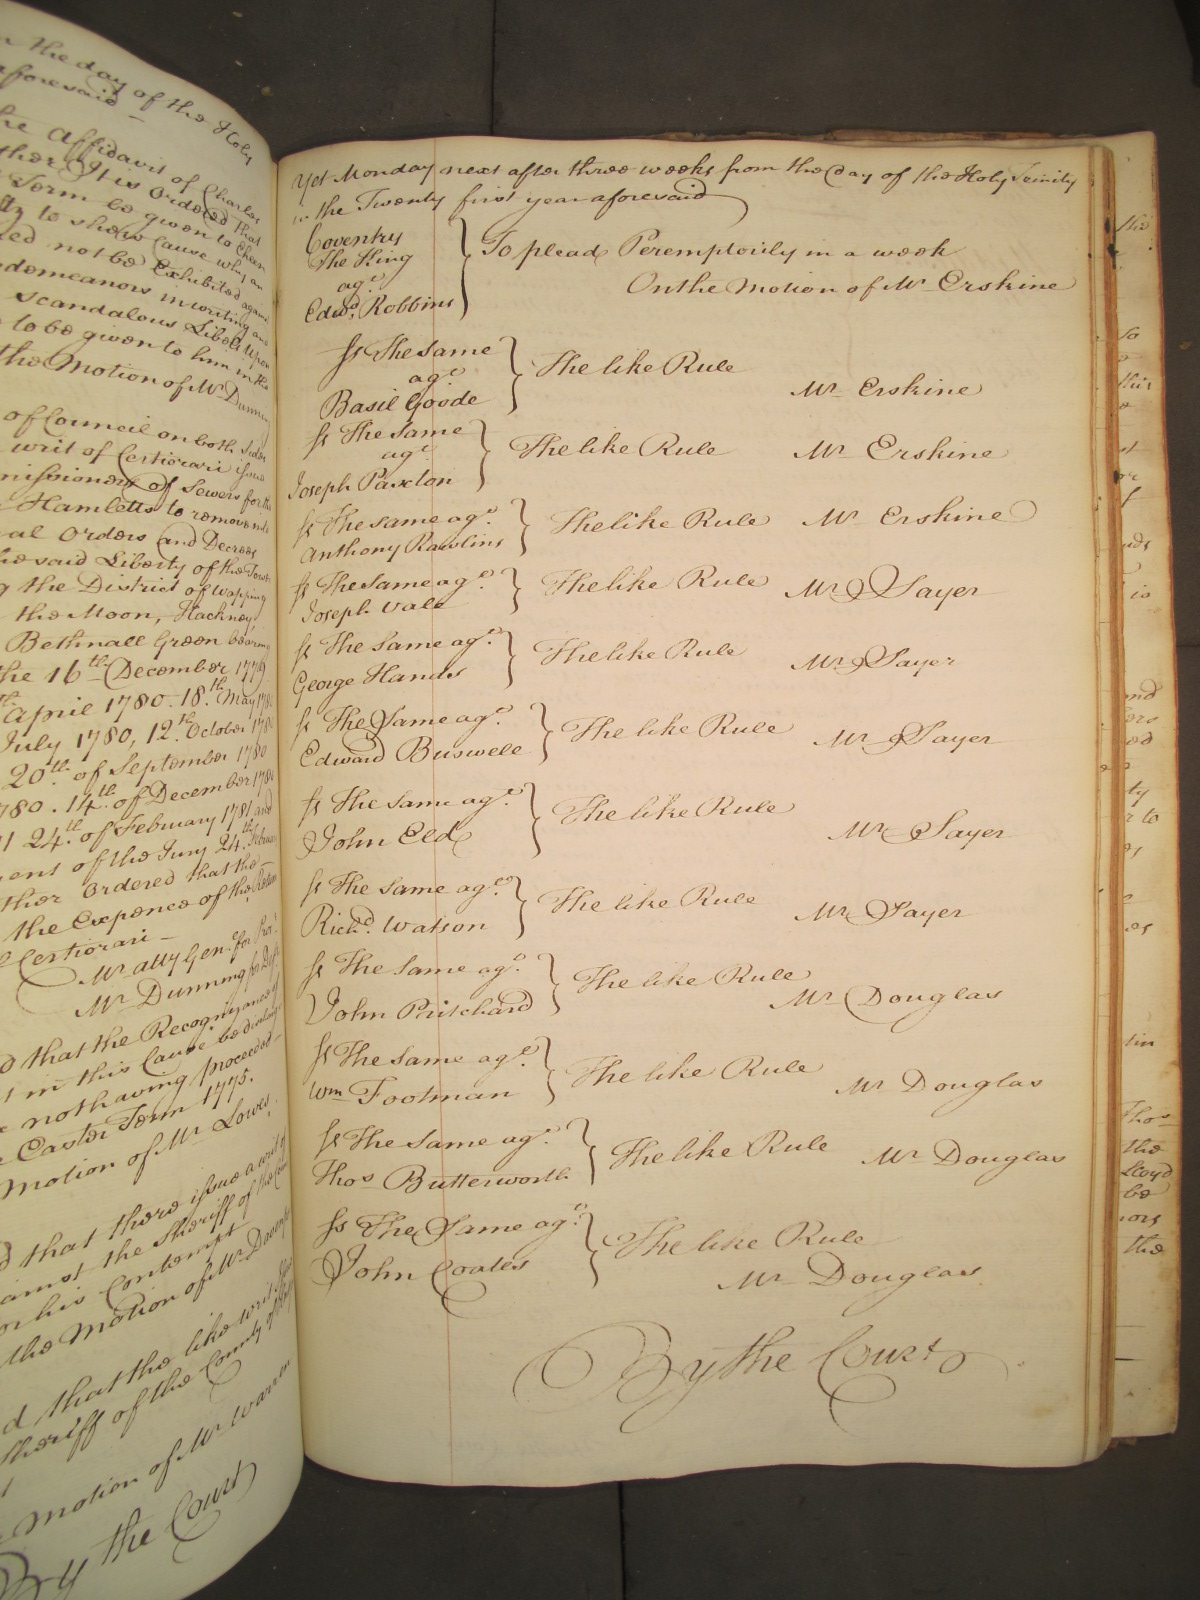 n the day of the Holy
aforesaid
he Affidavit of Charles
ther It is Ordered that
Term be given to
to shew cause why an
ed not be Exhibited against
demeanors in writing and
scandalous Libell upon
to be given to him in the
the Motion of Mr. Dunning
of Councel on both sides
writ of Certiorari issue
missioners of Sewers for the
Hamletts to remove
al Orders and Decrees
he said Liberty of the Tower
g the District of Wapping
the Moon, Hackney,
Bethnall Green bearing
the 16th December 1779
April 1780. 18th May
July 1780, 12th October
20th of September 1780
780. 14th of December 1780
24th of February 1781 and
ent of the Jury 24th
ther Ordered that the
the Expence of the Return
Certiorari
Mr. Atty Genl. for
Mr. Dunning for
d that the Recognizance
in this Cause be
not having proceeded
Easter Term 1775.
Motion of Mr. Lowes.
d that there issue a writ of
against the Sheriff of the
or his Contempt
the Motion of Mr.
d that the like writ
Sheriff of the County of
Motion of Mr. Warren
By the Court
Yet Monday next after three weeks from the Day of the Holy Trinity
in the Twenty first year aforesaid
Coventry
The King
agt.
Edwd. Robbins
To plead Peremptorily in a week
On the Motion of Mr Erskine
Ss The Same
agt.
Basil Goode
The like Rule
Mr Erskine
Ss The Same
agt.
Joseph Paxton
The like Rule Mr Erskine
Ss The same agt.
Anthony Rawlins
The like Rule Mr Erskine
Ss The same agt.
Joseph Vale
The like Rule Mr Sayer
Ss The same agt.
George Hands
The like Rule Mr Sayer
Ss The Same agt.
Edward Buswell
The like Rule Mr Sayer
Ss The same agt.
John Eld
The like Rule
Mr Sayer
Ss The same agt.
Richd. Watson
The like Rule Mr Sayer
Ss The Same agt.
John Pritchard
The like Rule
Mr Douglas
Ss The Same agt.
Wm Footman
The like Rule Mr Douglas
Ss The Same agt.
Thos Butterworth
The like Rule Mr Douglas
Ss The Same agt.
John Coales
The like Rule
Mr Douglas
By the Court